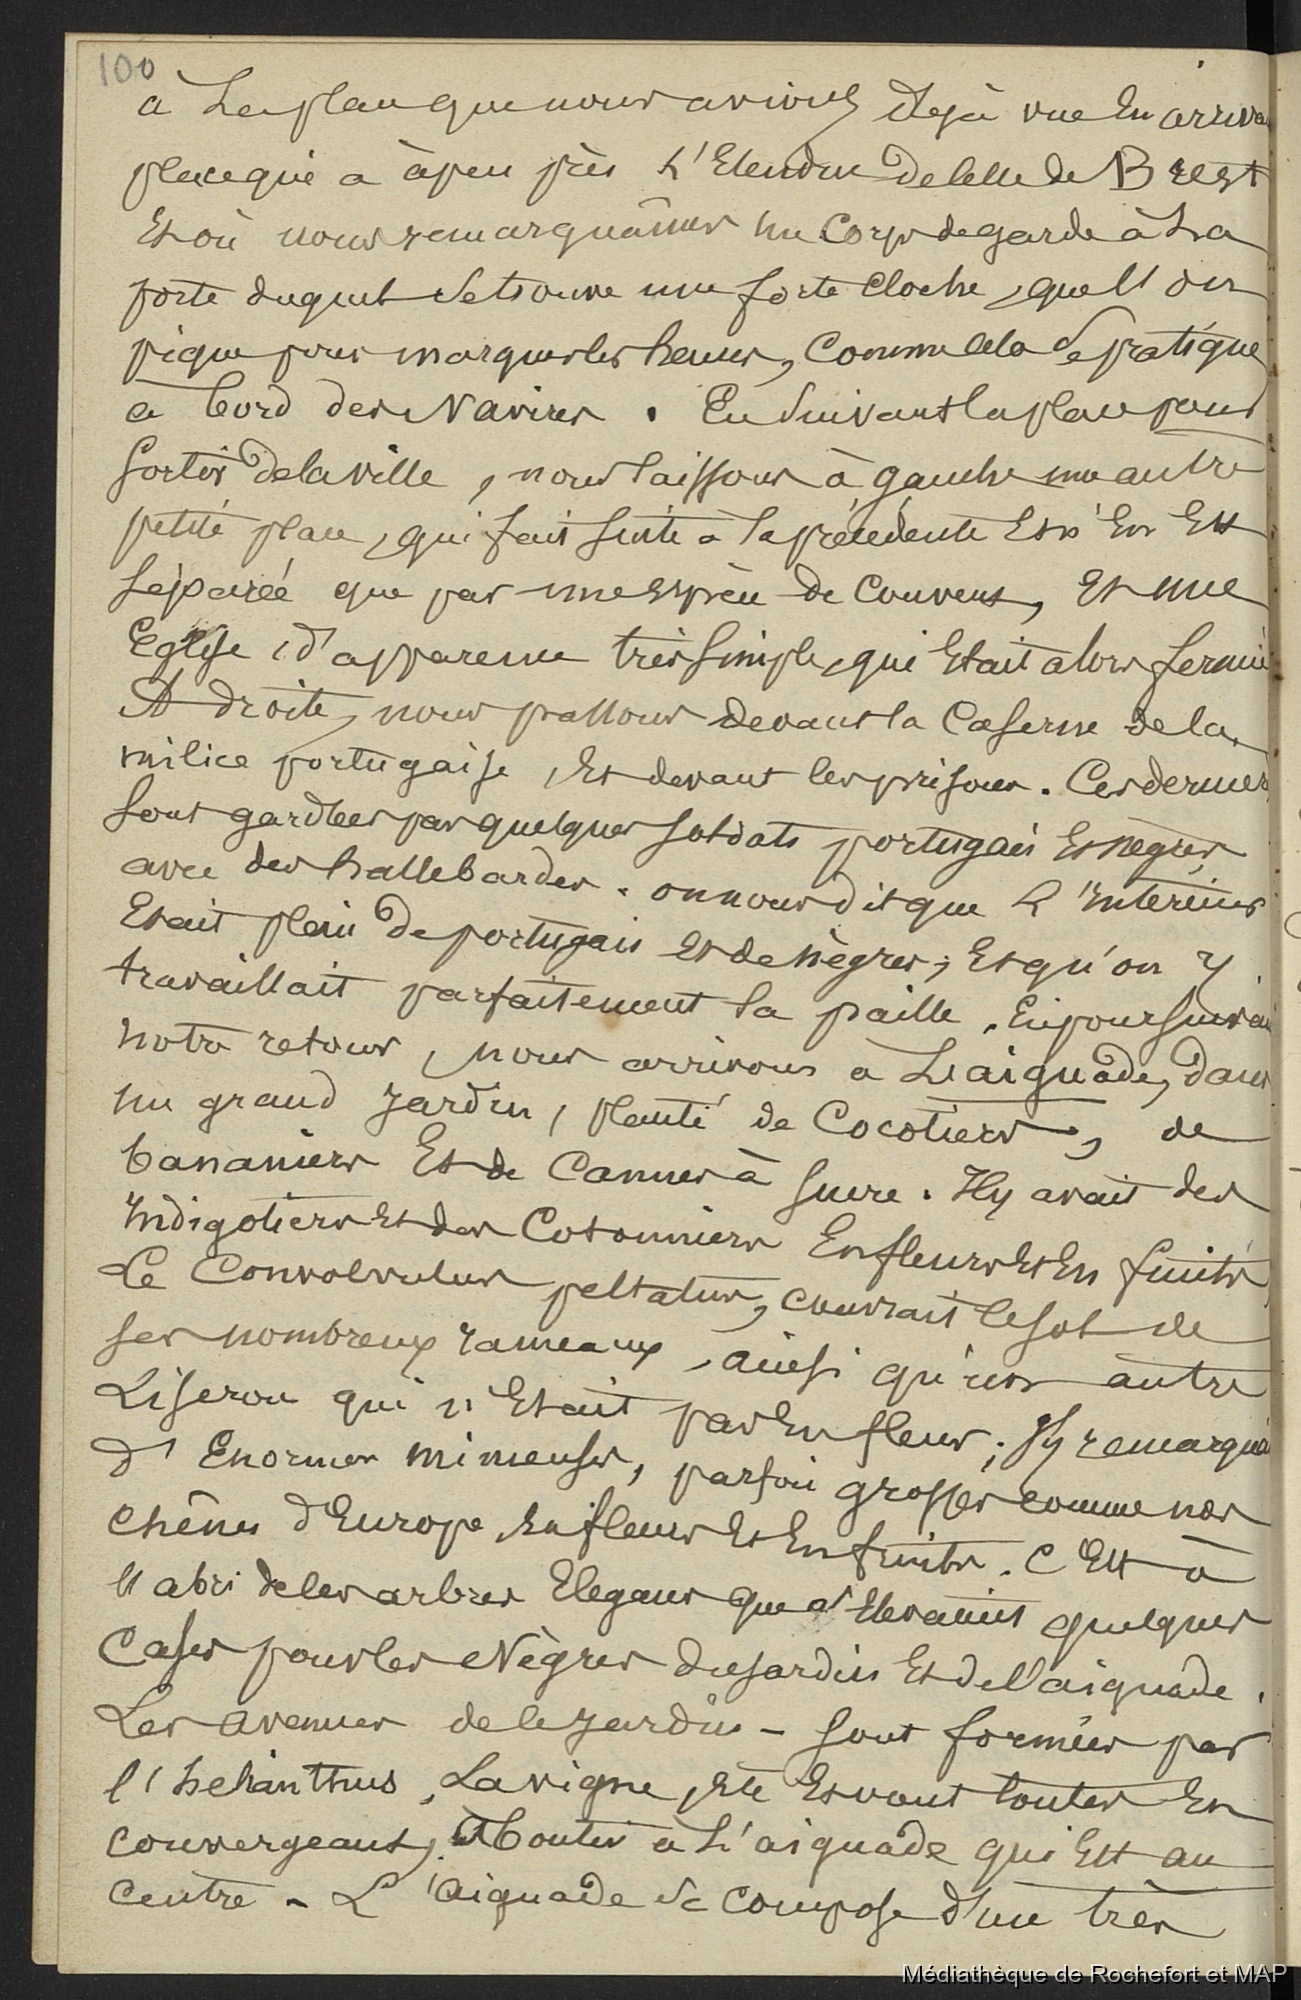 100
à La place que nous avions Déjà vue En arriva
place qui a àpeu près L'Etendue De celle de Brest
Et où nous remarquâmes un Corps de garde à La
porte duquel Se trouve une forte Cloche, que l'on
pique pour marquer les heures, Comme Cela Se pratique
à bord des Navires. En Suivant la place pour
Sortir De la ville, nous laissons à gauche une autre
petite place, qui fait Suite à la précédente Et n'En Est
Séparée que par une espèce de Couvent, Et une
Eglise, d'apparence très Simple, qui Etait alors fermée
A droite, nous passons devant la Caserne de la
milice portugaise, Et devant les prisons. Ces dernières
Sont gardées par quelques Soldats portugais Et nègres
avec des hallebardes. on nous dit que L'Intérieur
Etait plein De portugais et de nègres, Et qu'on y
travaillait parfaitement la paille. En poursuivan
notre retour, nous arrivons à L'aiguade, dans
un grand Jardin, planté de Cocotiers, de
bananiers Et de Cannes à Sucre. Il y avait des
Indigotiers Et des Cotonniers En fleurs Et En fruits
Le Convolvulus peltatus, couvrait le Sol de
Ses nombreux rameaux, ainsi qu'un autre
Liseron qui n'Etait pas En fleur; J'y remarquai
d'Enormes mimeuses, parfois grosses comme nos
chênes d'Europe, En fleurs Et En fruits. C'Est à
l'abri de ces arbres Elegans que s'Elevaient quelques
Cases pour les Nègres du Jardin Et de l'aiguade.
Les avenues de ce Jardin - Sont formées par
l'helianthus, La vigne, Etc Et vont toutes En
convergeant, Aboutir à L'aiguade qui Est au
Centre - L'aiguade Se compose d'une très
Médiathèque de Rochefort et MAP